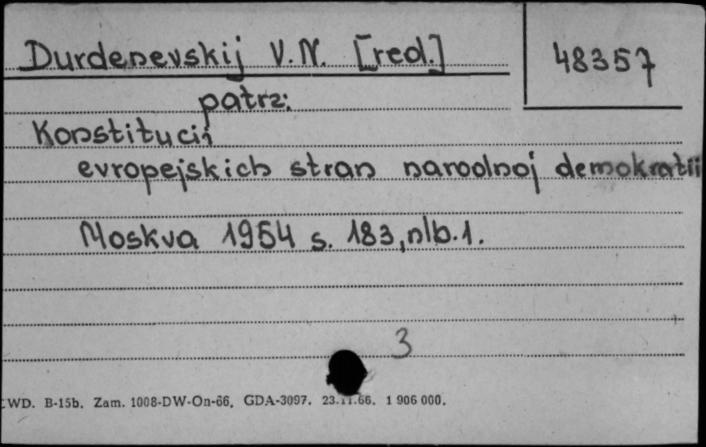 Durdenevskij V.N. [red.]
48357
patrz:
Konstitucii
evropejskich stran narodnoj demokratii
Moskva 1954 s. 183, nlb. 1.
3
WD. B-15b. Zam. 1008-DW-On-66. GDA-3097. 23.11.66. 1 906 000.